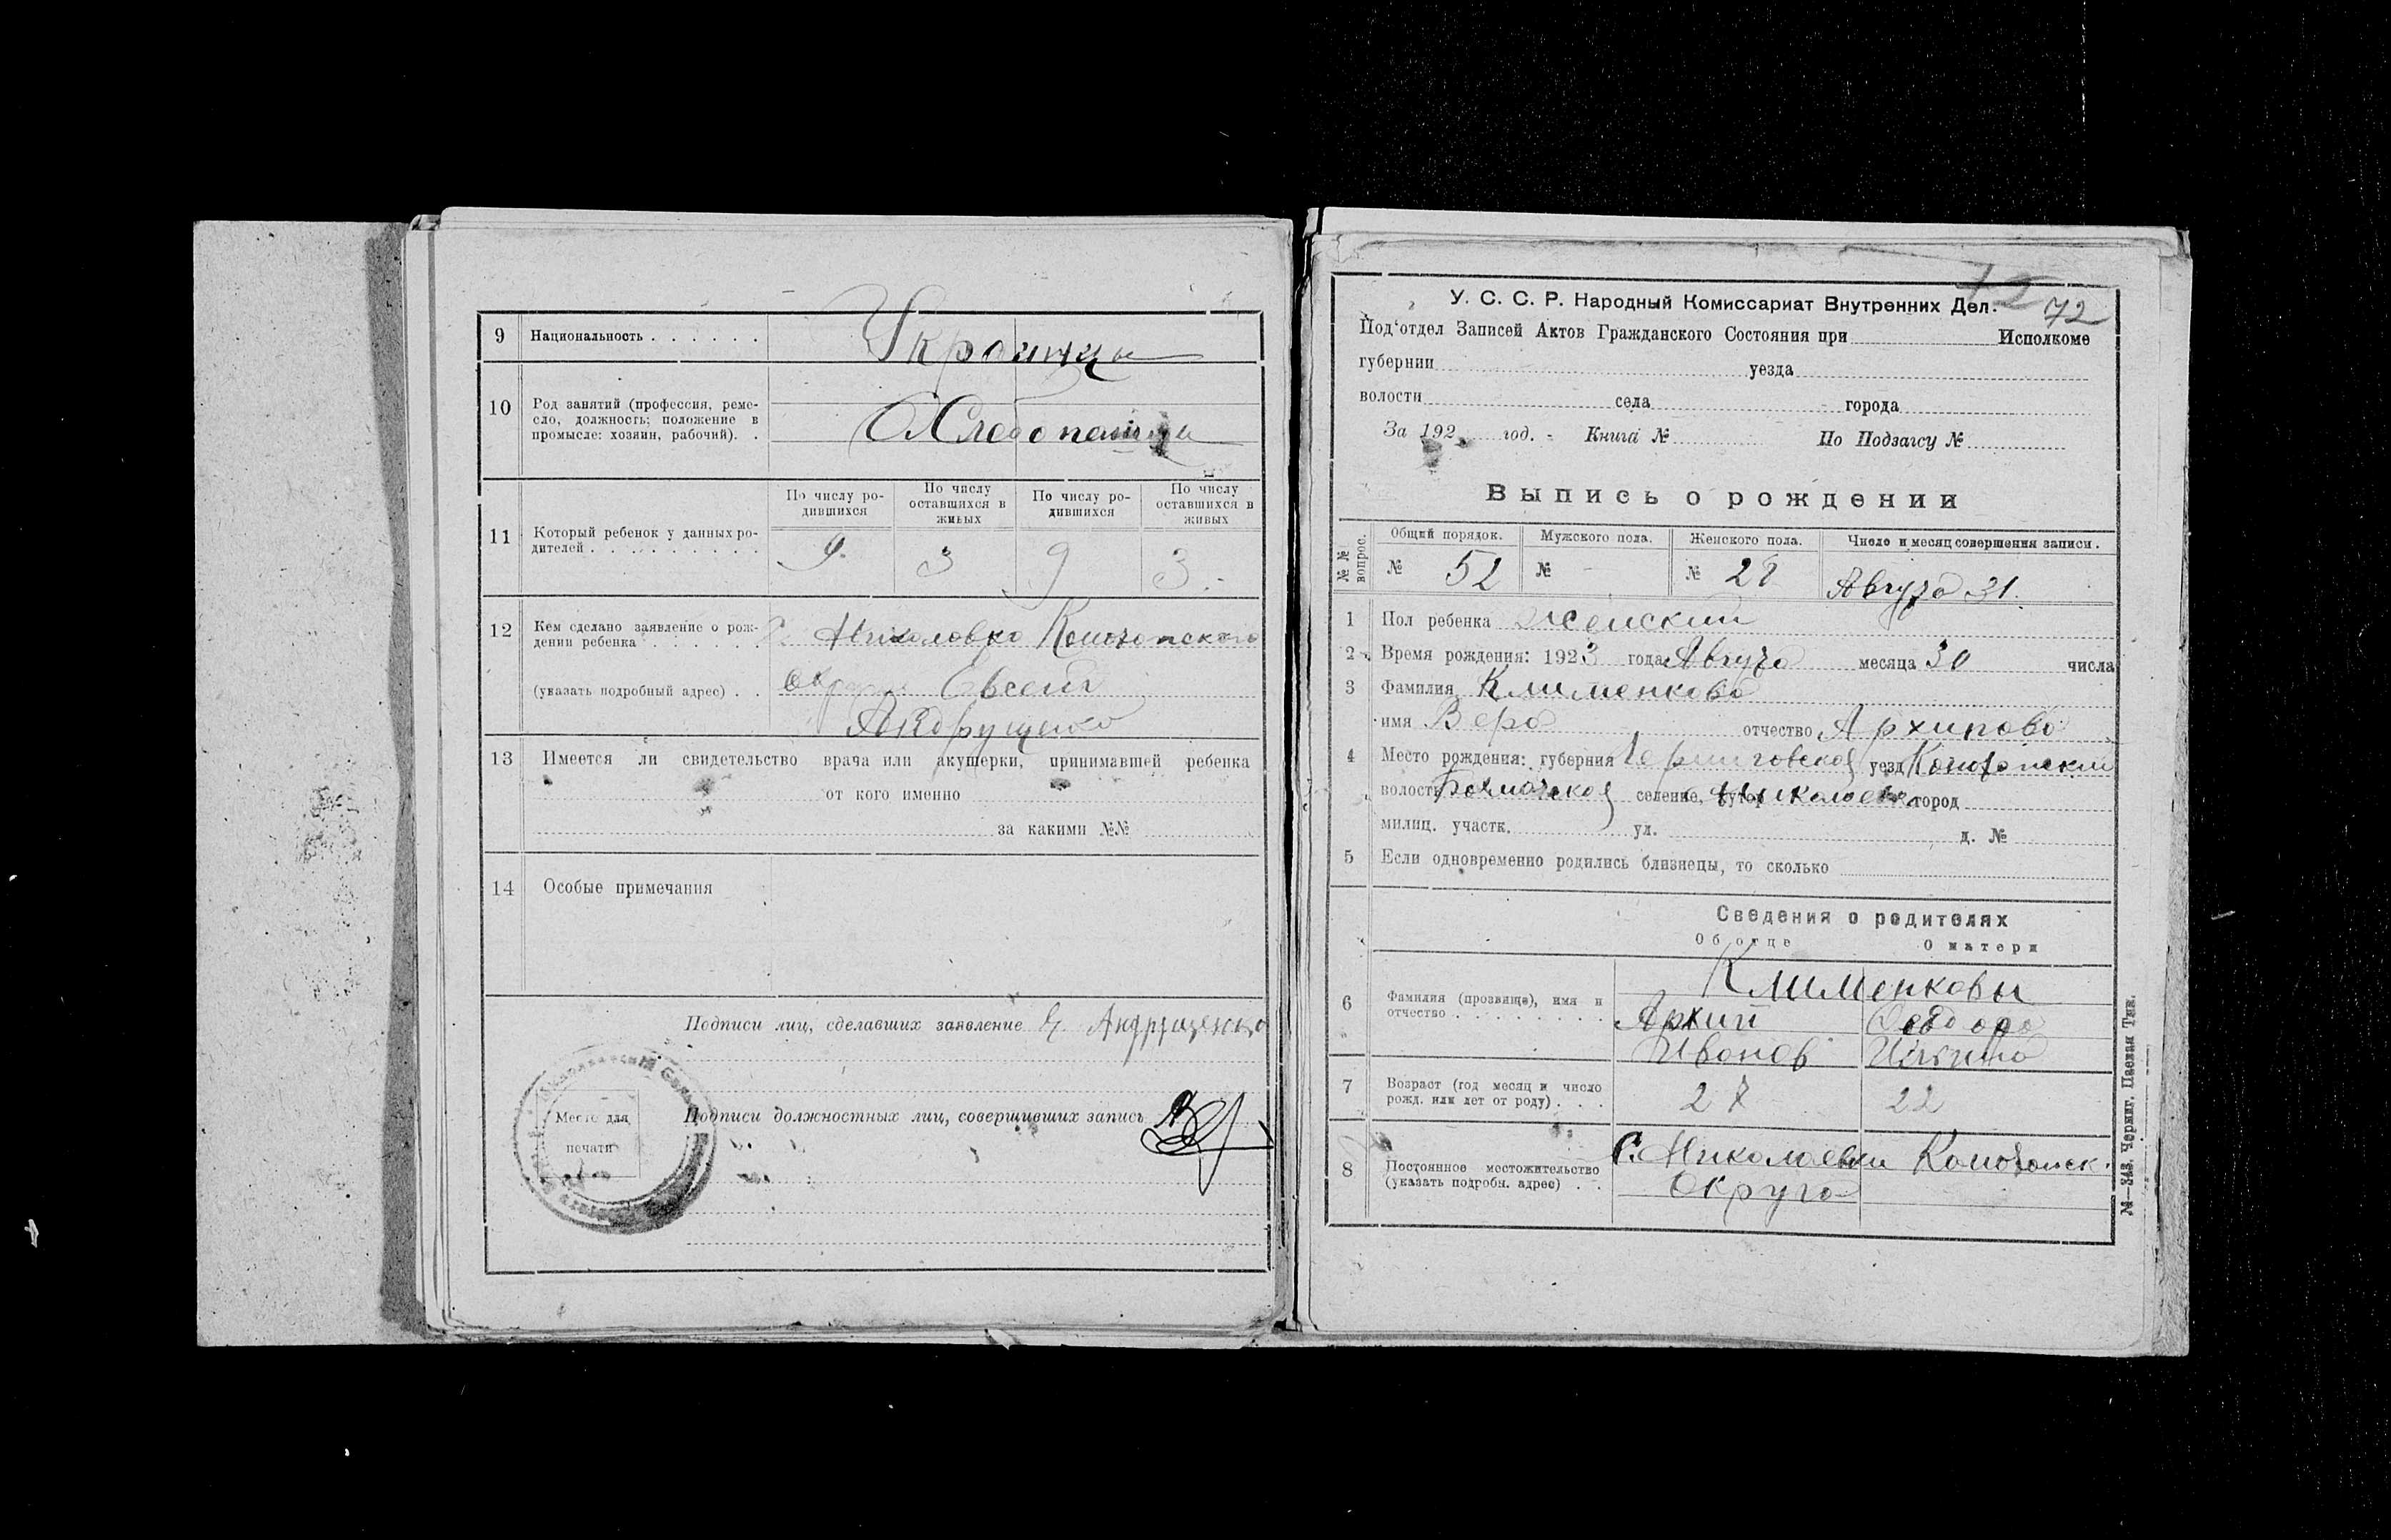 9 Национальность . . . . . . Украинцы
10 Род занятий (профессия, реме-
сло, должность; положение в
промысле: хозяин, рабочий). . Хлебопашцы
По числу ро-
дившихся
По числу
оставшихся в
живых
По числу ро-
дившихся
По числу
оставшихся в
живых
11 Который ребенок у данных ро-
дителей . . . . . . . . . .
3 9 3
12 Кем сделано заявление о рож-
дении ребенка . . . . . . С. Николовко Конотопского
(указать подробный адрес) . . Евсей
Андрущенко
13 Имеется ли свидетельство врача или акушерки, принимавшей ребенка
от кого именно
за какими №№
14 Особые примечания
Подписи лиц, сделавших заявление Е. Андрущенко
Место для
печати
Подписи должностных лиц, совершивших запись
72 72
У. С. С. Р. Народный Комиссариат Внутренних Дел.
Под'отдел Записей Актов Гражданского Состояния при Исполкоме
губернии уезда
волости села города
За 192 год. - Книга № По Подзагсу №
Выпись о рождении
№№ вопрос.
Общий порядок. Мужского пола. Женского пола. Число и месяц совершения записи.
№ 52 № - № 28 Августа 31.
1 Пол ребенка женский
2 Время рождения: 1923 года Августа месяца 30 числа
3 Фамилия Клименкова
имя Вера отчество Архипова
4 Место рождения: губерния Черниговская уезд Конотопский
волость Бахмачская селение, хутор Николаевка город
милиц. участк. ул. д. №
5 Если одновременно родились близнецы, то сколько
Сведения о родителях
Об отце О матери
6 Фамилия (прозвище), имя и
отчество . . . . . . . . .
Клименковы
Архип Федора
Иванов
7 Возраст (год месяц и число
рожд. или лет от роду) . . . 27 22
8 Постоянное местожительство
(указать подробн. адрес) . .
С. Николаевки Конотопск.
Округа
№—343. Черниг. Паевая Тип.